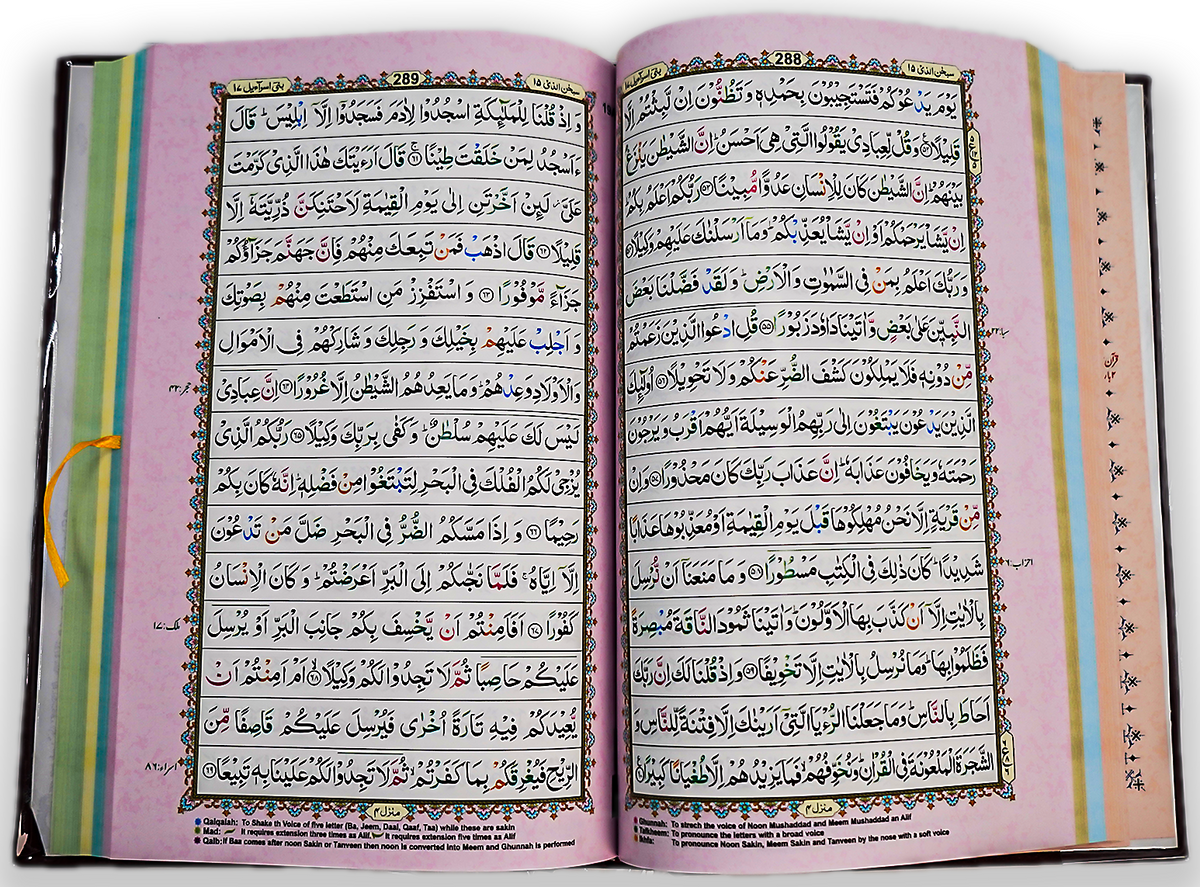 سبحٰن الذیٓ ۱۵
288
بنیٓ اسرآءیل ۱۷
يَوْمَ يَدْعُوْكُمْ فَتَسْتَجِيْبُوْنَ بِحَمْدِهٖ وَتَظُنُّوْنَ اِنْ لَّبِثْتُمْ اِلَّا
قَلِيْلًا ۝٥٢ وَقُلْ لِّعِبَادِيْ يَقُوْلُوا الَّتِيْ هِيَ اَحْسَنُ ؕ اِنَّ الشَّيْطٰنَ يَنْزَغُ
بَيْنَهُمْ ؕ اِنَّ الشَّيْطٰنَ كَانَ لِلْاِنْسَانِ عَدُوًّا مُّبِيْنًا ۝٥٣ رَبُّكُمْ اَعْلَمُ بِكُمْ ؕ
اِنْ يَّشَاْ يَرْحَمْكُمْ اَوْ اِنْ يَّشَاْ يُعَذِّبْكُمْ ؕ وَمَاۤ اَرْسَلْنٰكَ عَلَيْهِمْ وَكِيْلًا ۝٥٤
وَرَبُّكَ اَعْلَمُ بِمَنْ فِي السَّمٰوٰتِ وَالْاَرْضِ ؕ وَلَقَدْ فَضَّلْنَا بَعْضَ
النَّبِيّٖنَ عَلٰى بَعْضٍ وَّاٰتَيْنَا دَاوٗدَ زَبُوْرًا ۝٥٥ قُلِ ادْعُوا الَّذِيْنَ زَعَمْتُمْ
مِّنْ دُوْنِهٖ فَلَا يَمْلِكُوْنَ كَشْفَ الضُّرِّ عَنْكُمْ وَلَا تَحْوِيْلًا ۝٥٦ اُولٰٓئِكَ
الَّذِيْنَ يَدْعُوْنَ يَبْتَغُوْنَ اِلٰى رَبِّهِمُ الْوَسِيْلَةَ اَيُّهُمْ اَقْرَبُ وَيَرْجُوْنَ
رَحْمَتَهٗ وَيَخَافُوْنَ عَذَابَهٗ ؕ اِنَّ عَذَابَ رَبِّكَ كَانَ مَحْذُوْرًا ۝٥٧ وَاِنْ
مِّنْ قَرْيَةٍ اِلَّا نَحْنُ مُهْلِكُوْهَا قَبْلَ يَوْمِ الْقِيٰمَةِ اَوْ مُعَذِّبُوْهَا عَذَابًا
شَدِيْدًا ؕ كَانَ ذٰلِكَ فِي الْكِتٰبِ مَسْطُوْرًا ۝٥٨ وَمَا مَنَعَنَاۤ اَنْ نُّرْسِلَ
بِالْاٰيٰتِ اِلَّاۤ اَنْ كَذَّبَ بِهَا الْاَوَّلُوْنَ ؕ وَاٰتَيْنَا ثَمُوْدَ النَّاقَةَ مُبْصِرَةً
فَظَلَمُوْا بِهَا ؕ وَمَا نُرْسِلُ بِالْاٰيٰتِ اِلَّا تَخْوِيْفًا ۝٥٩ وَاِذْ قُلْنَا لَكَ اِنَّ رَبَّكَ
اَحَاطَ بِالنَّاسِ ؕ وَمَا جَعَلْنَا الرُّءْيَا الَّتِيْۤ اَرَيْنٰكَ اِلَّا فِتْنَةً لِّلنَّاسِ وَ
الشَّجَرَةَ الْمَلْعُوْنَةَ فِي الْقُرْاٰنِ ؕ وَنُخَوِّفُهُمْ ۙ فَمَا يَزِيْدُهُمْ اِلَّا طُغْيَانًا كَبِيْرًا ۝٦٠
منزل ۴
Ghunnah: To strech the voice of Noon Mushaddad and Meem Mushaddad an Alif
Tafkheem: To pronounce the letters with a broad voice
Ikhfa: To pronounce Noon Sakin, Meem Sakin and Tanveen by the nose with a soft voice
سبحٰن الذیٓ ۱۵
289
بنیٓ اسرآءیل ۱۷
وَ اِذْ قُلْنَا لِلْمَلٰٓئِكَةِ اسْجُدُوْا لِاٰدَمَ فَسَجَدُوْۤا اِلَّاۤ اِبْلِيْسَ ؕ قَالَ
ءَاَسْجُدُ لِمَنْ خَلَقْتَ طِيْنًا ۝٦١ قَالَ اَرَءَيْتَكَ هٰذَا الَّذِيْ كَرَّمْتَ
عَلَيَّ ؗ لَئِنْ اَخَّرْتَنِ اِلٰى يَوْمِ الْقِيٰمَةِ لَاَحْتَنِكَنَّ ذُرِّيَّتَهٗۤ اِلَّا
قَلِيْلًا ۝٦٢ قَالَ اذْهَبْ فَمَنْ تَبِعَكَ مِنْهُمْ فَاِنَّ جَهَنَّمَ جَزَآؤُكُمْ
جَزَآءً مَّوْفُوْرًا ۝٦٣ وَ اسْتَفْزِزْ مَنِ اسْتَطَعْتَ مِنْهُمْ بِصَوْتِكَ
وَ اَجْلِبْ عَلَيْهِمْ بِخَيْلِكَ وَ رَجِلِكَ وَ شَارِكْهُمْ فِي الْاَمْوَالِ
وَالْاَوْلَادِ وَعِدْهُمْ ؕ وَمَا يَعِدُهُمُ الشَّيْطٰنُ اِلَّا غُرُوْرًا ۝٦٤ اِنَّ عِبَادِيْ
لَيْسَ لَكَ عَلَيْهِمْ سُلْطٰنٌ ؕ وَ كَفٰى بِرَبِّكَ وَكِيْلًا ۝٦٥ رَبُّكُمُ الَّذِيْ
يُزْجِيْ لَكُمُ الْفُلْكَ فِي الْبَحْرِ لِتَبْتَغُوْا مِنْ فَضْلِهٖ ؕ اِنَّهٗ كَانَ بِكُمْ
رَحِيْمًا ۝٦٦ وَ اِذَا مَسَّكُمُ الضُّرُّ فِي الْبَحْرِ ضَلَّ مَنْ تَدْعُوْنَ
اِلَّاۤ اِيَّاهُ ۚ فَلَمَّا نَجّٰىكُمْ اِلَى الْبَرِّ اَعْرَضْتُمْ ؕ وَ كَانَ الْاِنْسَانُ
كَفُوْرًا ۝٦٧ اَفَاَمِنْتُمْ اَنْ يَّخْسِفَ بِكُمْ جَانِبَ الْبَرِّ اَوْ يُرْسِلَ
عَلَيْكُمْ حَاصِبًا ثُمَّ لَا تَجِدُوْا لَكُمْ وَكِيْلًا ۝٦٨ اَمْ اَمِنْتُمْ اَنْ
يُّعِيْدَكُمْ فِيْهِ تَارَةً اُخْرٰى فَيُرْسِلَ عَلَيْكُمْ قَاصِفًا مِّنَ
الرِّيْحِ فَيُغْرِقَكُمْ بِمَا كَفَرْتُمْ ۙ ثُمَّ لَا تَجِدُوْا لَكُمْ عَلَيْنَا بِهٖ تَبِيْعًا ۝٦٩
منزل ۴
Qalqalah: To Shake th Voice of five letter (Ba, Jeem, Daal, Qaaf, Taa) while these are sakin
Mad: It requires extension three times as Alif. It requires extension five times as Alif
Qalb: If Baa comes after noon Sakin or Tanveen then noon is converted into Meem and Ghunnah is performed